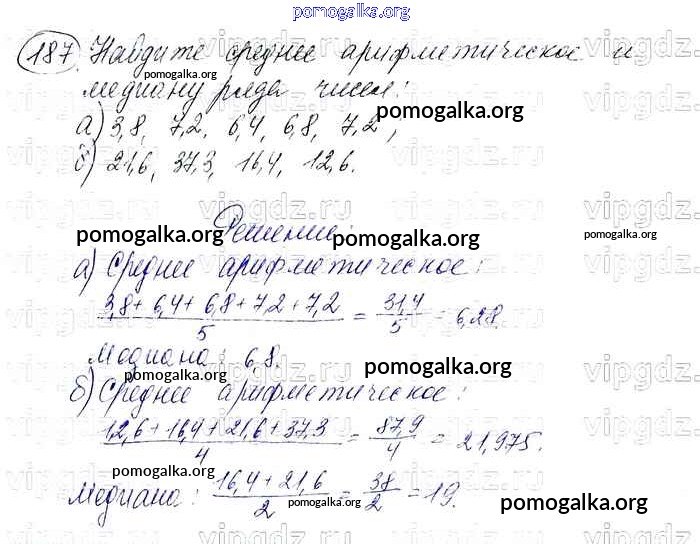 pomogalka.org
187 Найдите среднее арифметическое и
медиану ряда чисел:
а) 3,8, 7,2, 6,4, 6,8, 7,2,
б) 21,6, 37,3, 16,4, 12,6.
Решение:
а) Среднее арифметическое:
3,8 + 6,4 + 6,8 + 7,2 + 7,2 / 5 = 31,4 / 5 = 6,28.
Медиана: 6,8.
б) Среднее арифметическое:
12,6 + 16,4 + 21,6 + 37,3 / 4 = 87,9 / 4 = 21,975.
Медиана: 16,4 + 21,6 / 2 = 38 / 2 = 19.
pomogalka.org
pomogalka.org
pomogalka.org
pomogalka.org
pomogalka.org
pomogalka.org
pomogalka.org
pomogalka.org
pomogalka.org
pomogalka.org
pomogalka.org
vipgdz.ru
vipgdz.ru
vipgdz.ru